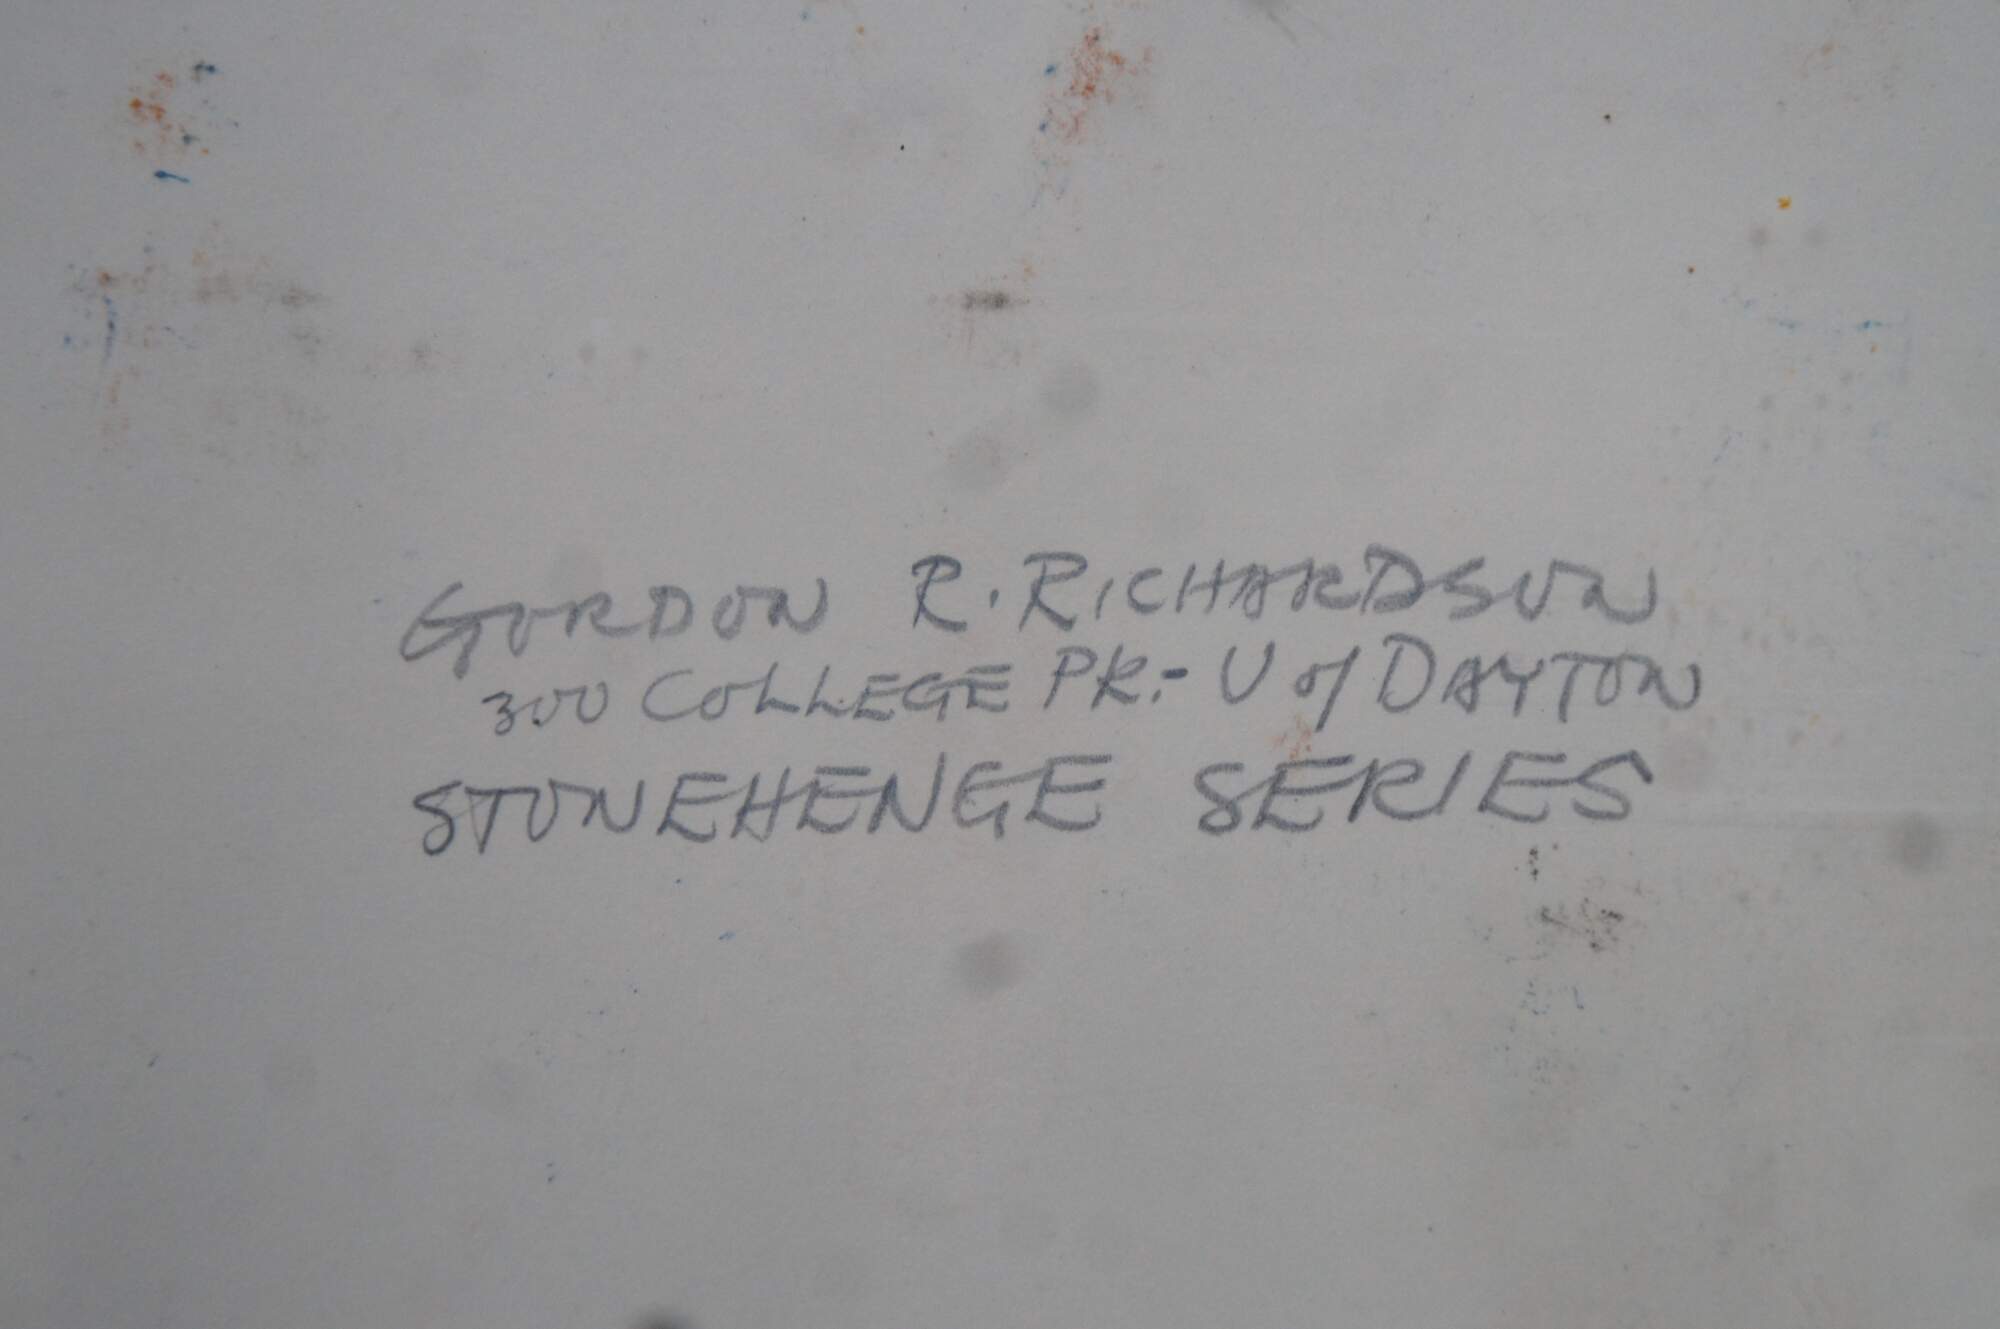 GORDON R. RICHARDSON
300 COLLEGE PK.- U of DAYTON
STONEHENGE SERIES